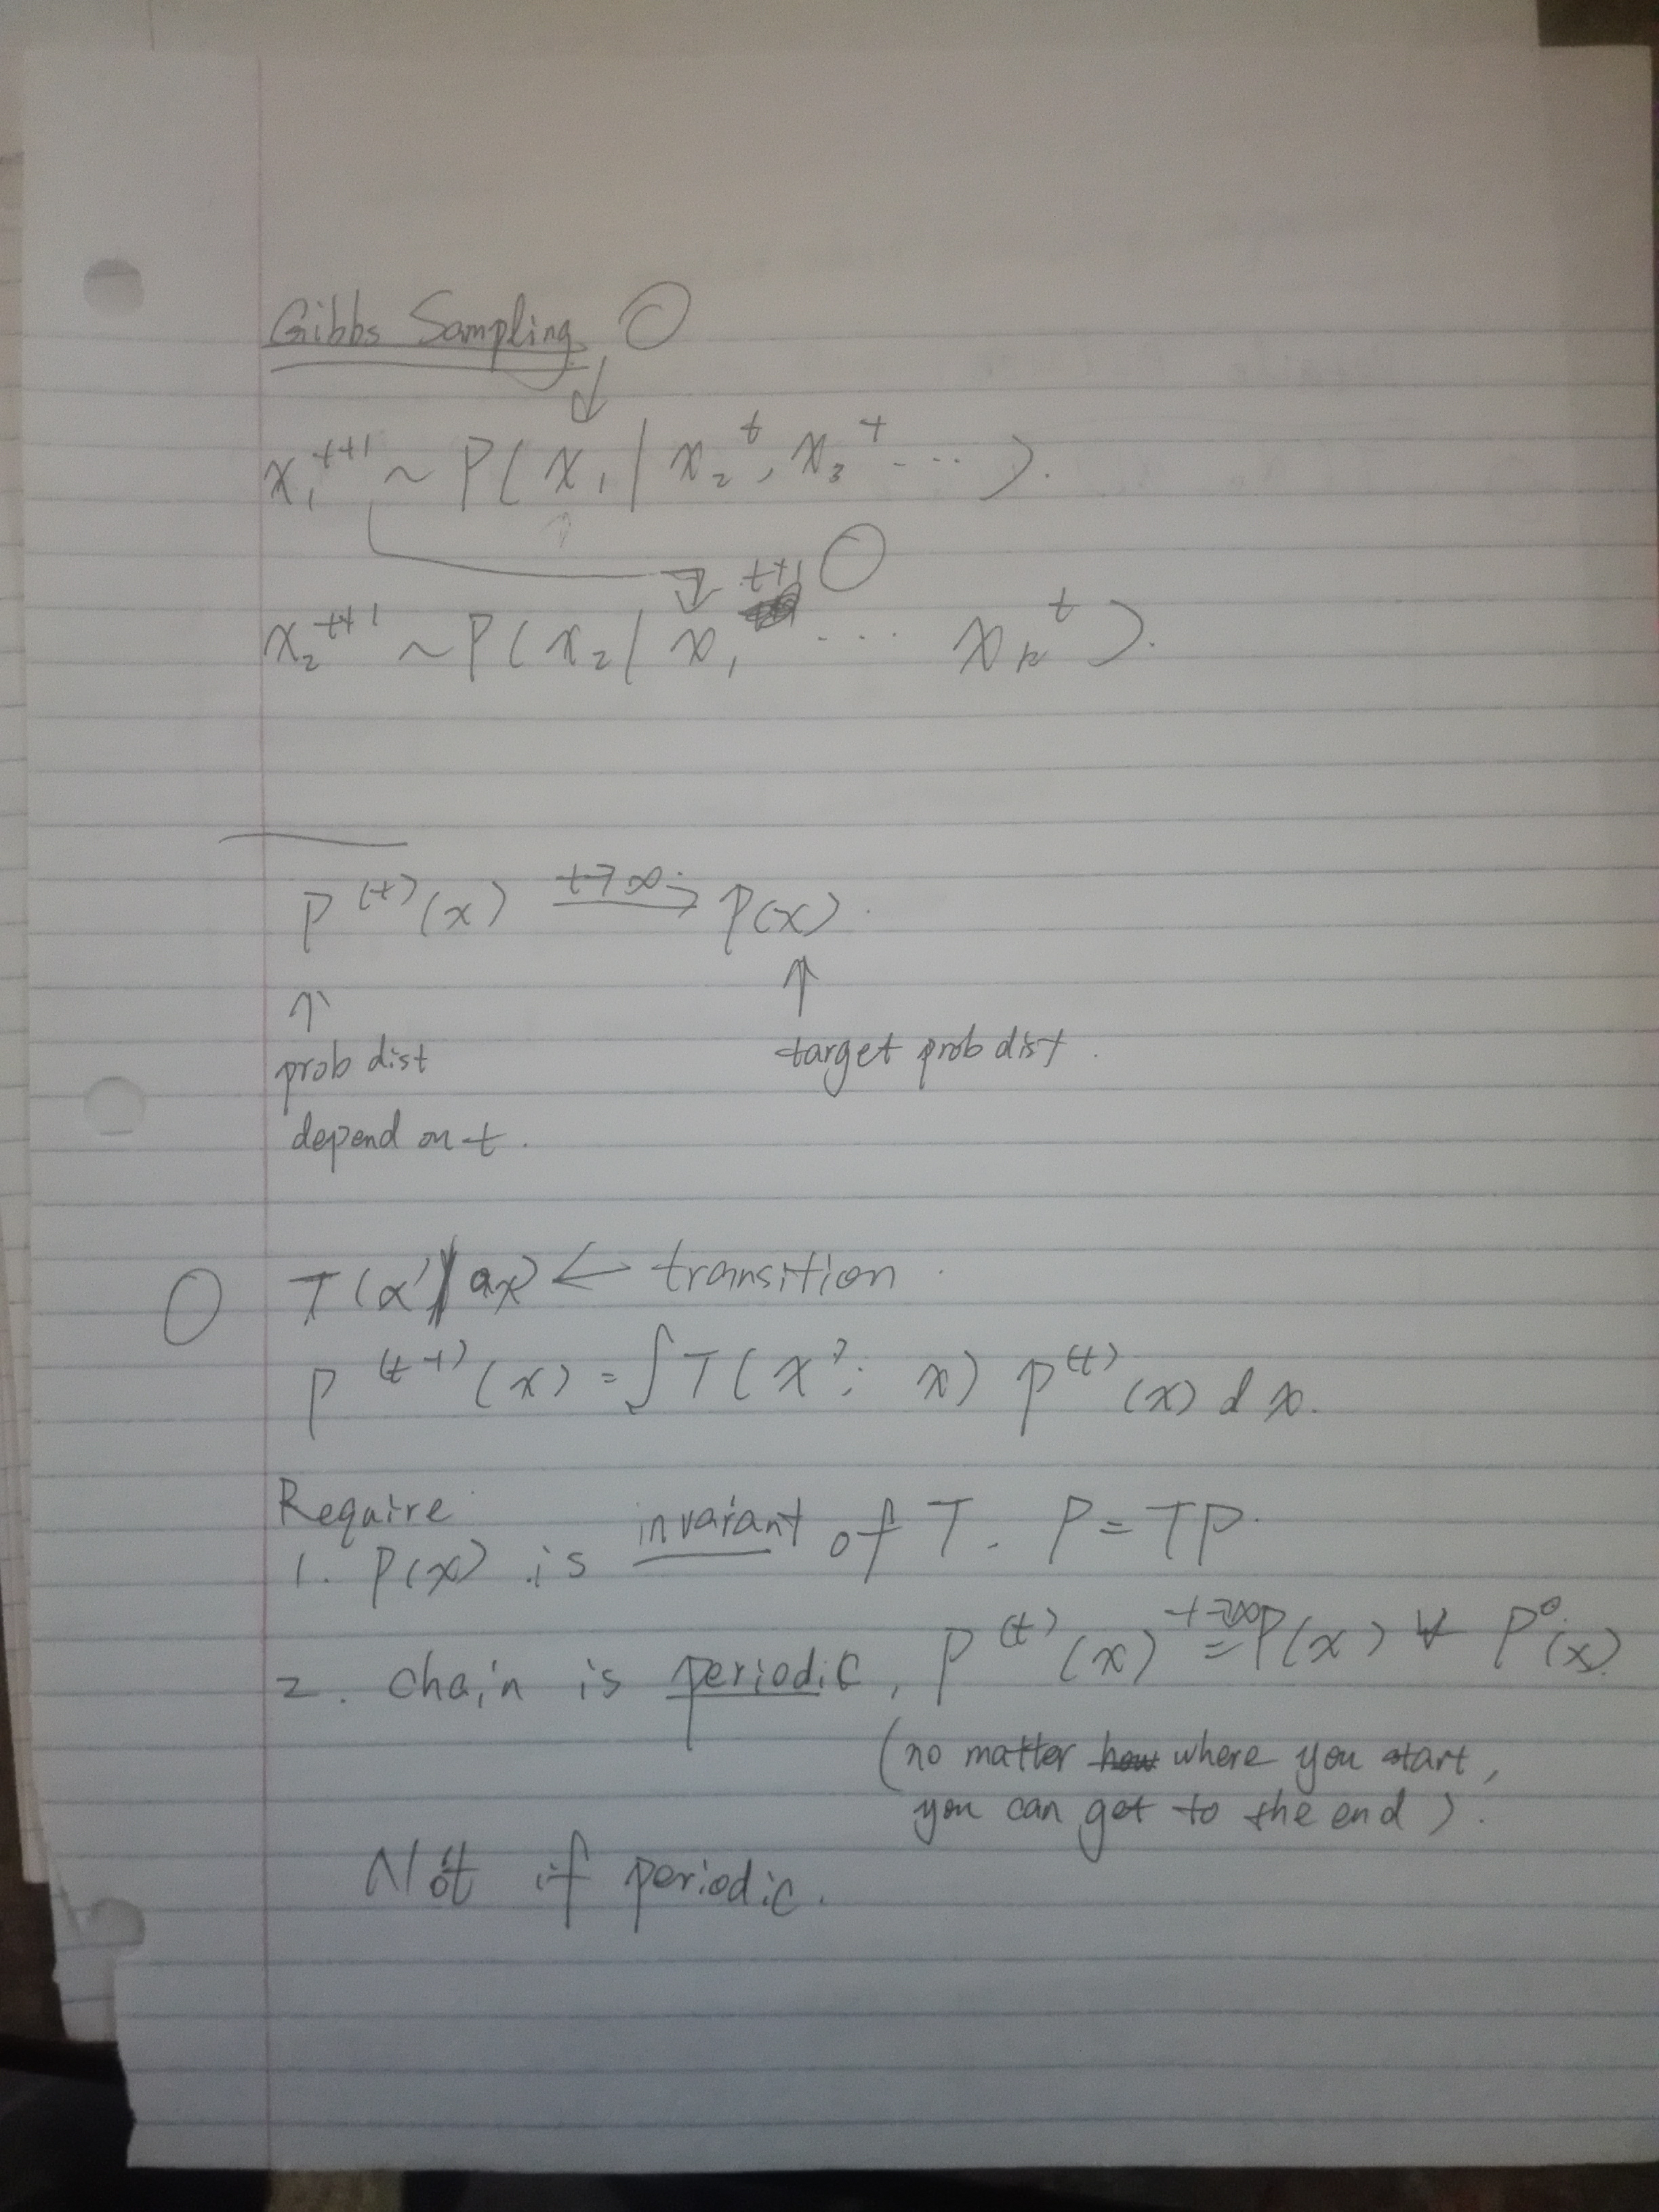 Gibbs Sampling
x₁^{t+1} ~ P(x₁ | x₂^t, x₃^t ... ).
x₂^{t+1} ~ P(x₂ | x₁^{t+1} ... x_k^t).
P^{(t)}(x) →^{t→∞} P(x).
↑ ↑
prob dist target prob dist.
depend on t.
T(x' x) ← transition.
P^{(t+1)}(x) = ∫T(x'; x) P^{(t)}(x) dx.
Require
1. P(x) is invaraint of T. P = TP.
2. chain is periodic, P^{(t)}(x) =^{t→∞} P(x) ∀ P^0(x).
(no matter how where you start,
you can get to the end).
Not if periodic.